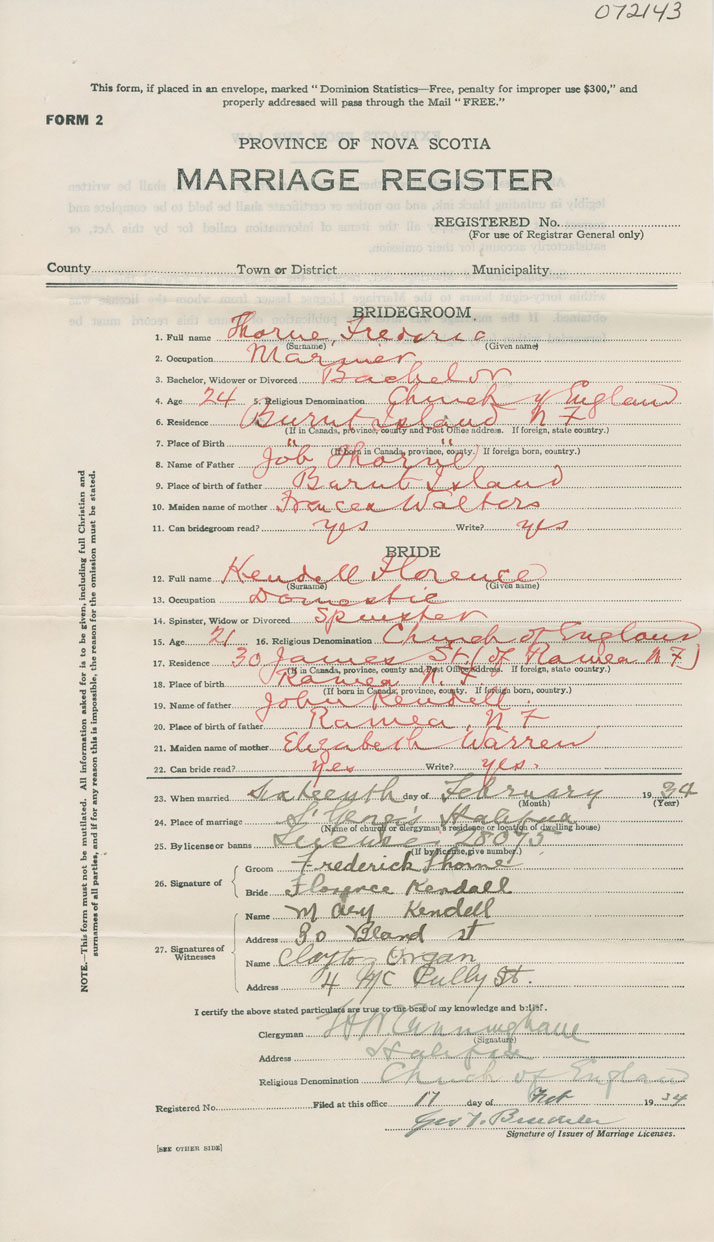 072143
This form, if placed in an envelope, marked "Dominion Statistics—Free, penalty for improper use $300," and
properly addressed will pass through the Mail "FREE."
FORM 2
PROVINCE OF NOVA SCOTIA
MARRIAGE REGISTER
REGISTERED No.
(For use of Registrar General only)
County Town or District Municipality
BRIDEGROOM
1. Full name Thorne, Frederic
(Surname) (Given name)
2. Occupation Mariner
3. Bachelor, Widower or Divorced Bachelor
4. Age 24 5. Religious Denomination Church of England
6. Residence Burnt Island NF
(If in Canada, province, county and Post Office address. If foreign, state country.)
7. Place of Birth " "
(If born in Canada, province, county. If foreign born, country.)
8. Name of Father Job Thorne
9. Place of birth of father Burnt Island
10. Maiden name of mother Frances Walters
11. Can bridegroom read? yes Write? yes
BRIDE
12. Full name Kendell Florence
(Surname) (Given name)
13. Occupation Domestic
14. Spinster, Widow or Divorced Spinster
15. Age 21 16. Religious Denomination Church of England
17. Residence 30 James St (of Ramea NF)
(If in Canada, province, county and Post Office address. If foreign, state country.)
18. Place of birth Ramea N.F
(If born in Canada, province, county. If foreign born, country.)
19. Name of father John Kendell.
20. Place of birth of father Ramea, NF
21. Maiden name of mother Elizabeth Warren
22. Can bride read? Yes Write? yes.
23. When married Sixteenth day of February 1934
(Month) (Year)
24. Place of marriage St George's Halifax
(Name of church or clergyman's residence or location of dwelling house)
25. By license or banns License 28075
(If by license, give number.)
26. Signature of
Groom Frederick Thorne
Bride Florence Kendall
27. Signatures of
Witnesses
Name Mary Kendell
Address 30 Bland st
Name Clayton Organ
Address 4 McCully St.
I certify the above stated particulars are true to the best of my knowledge and belief.
Clergyman H W Cunningham
(Signature)
Address Halifax
Religious Denomination Church of England
Registered No. Filed at this office 17 day of Feb 1934
Geo
Signature of Issuer of Marriage Licenses.
[SEE OTHER SIDE]
NOTE.—This form must not be mutilated. All information asked for is to be given, including full Christian and
surnames of all parties, and if for any reason this is impossible, the reason for the omission must be stated.